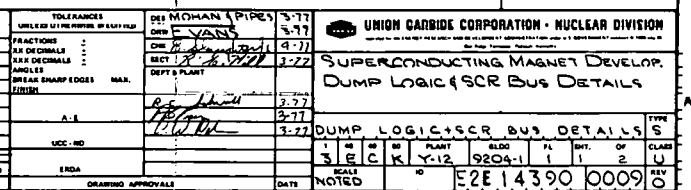 TOLERANCES
UNLESS OTHERWISE SPECIFIED
FRACTIONS ±
XX DECIMALS ±
XXX DECIMALS ±
ANGLES ±
BREAK SHARP EDGES MAX.
FINISH
A-E
UCC-ND
ERDA
DRAWING APPROVALS DATE
DES MOHAN & PIPES 3-77
DRW EVANS 3-77
CHK 4-77
SECT 3-77
DEPT & PLANT
3.77
3-77
3-77
UNION CARBIDE CORPORATION · NUCLEAR DIVISION
SUPERCONDUCTING MAGNET DEVELOP.
DUMP LOGIC & SCR BUS DETAILS
DUMP LOGIC+SCR BUS DETAILS
TYPE
S
PLANT BLDG FL SHT. OF CLASS
3 E C K Y-12 9204-1 1 1 2 U
SCALE
NOTED
ID
E2E 14390 0009
REV
0
A